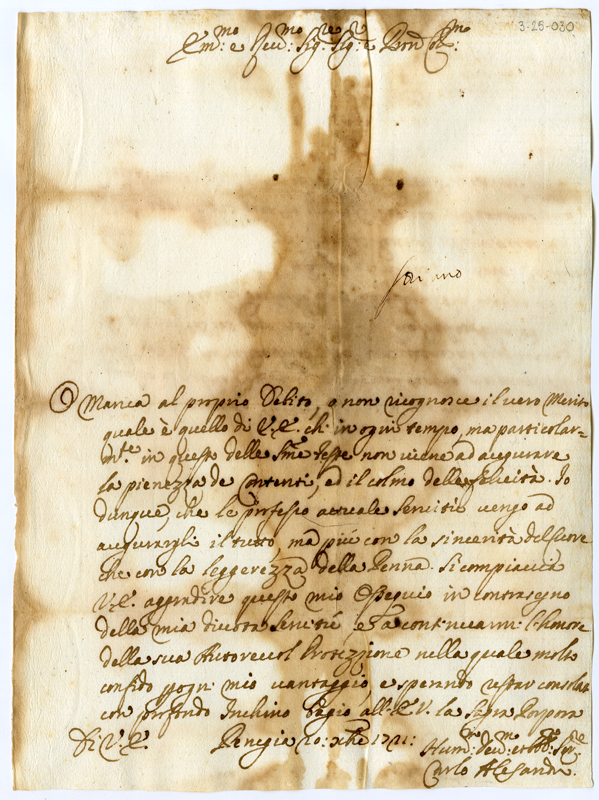 3-25-030
Em.mo e Rev.mo Sig.re Sig.r e Pron Col.mo
O Manca al proprio Debito, o non ricognosce il vero Merito
quale è quello di V.E. ch' in ogni tempo, ma particolar=
m.te in queste delle S.me feste non viene ad augurare
la pienezza de Contenti, ed il colmo delle felicità. Io
dunque, che le professo attuale Servitù vengo ad
augurargli il tutto, ma più con la sincerità del Cuore
che con la leggerezza della Penna. Si compiaccia
V.E. aggradire questo mio Ossequio in contrasegno
della mia divota Servitù e continuarmi l'honore
della sua Autorevol Protezzione nella quale molto
confido ogni mio vantaggio e sperando restar consolato
con profondo Inchino bagio all' E.V. la Sagra Porpora
Di V.E. Perugia 20: Xbre 1721:
Hum.mo dev.mo Ser.re
Carlo